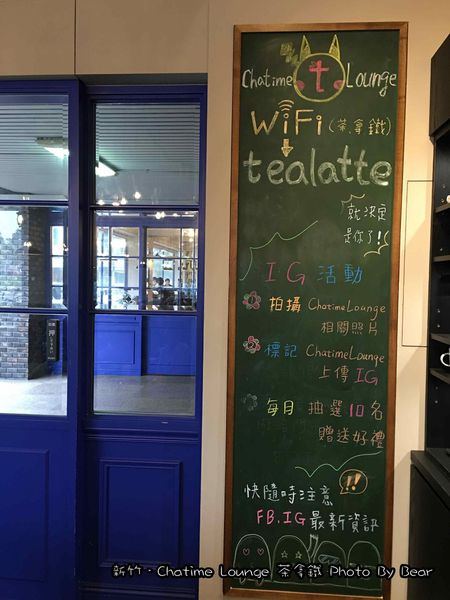 Chatime t Lounge
WiFi (茶.拿鐵)
tealatte
就決定
是你了!!
IG 活動
1 拍攝 ChatimeLounge
相關照片
2 標記 ChatimeLounge
上傳 IG
每月 抽選10名
贈送好禮
快隨時注意 !!
FB.IG最新資訊
新竹·Chatime Lounge 茶拿鐵 Photo By Bear